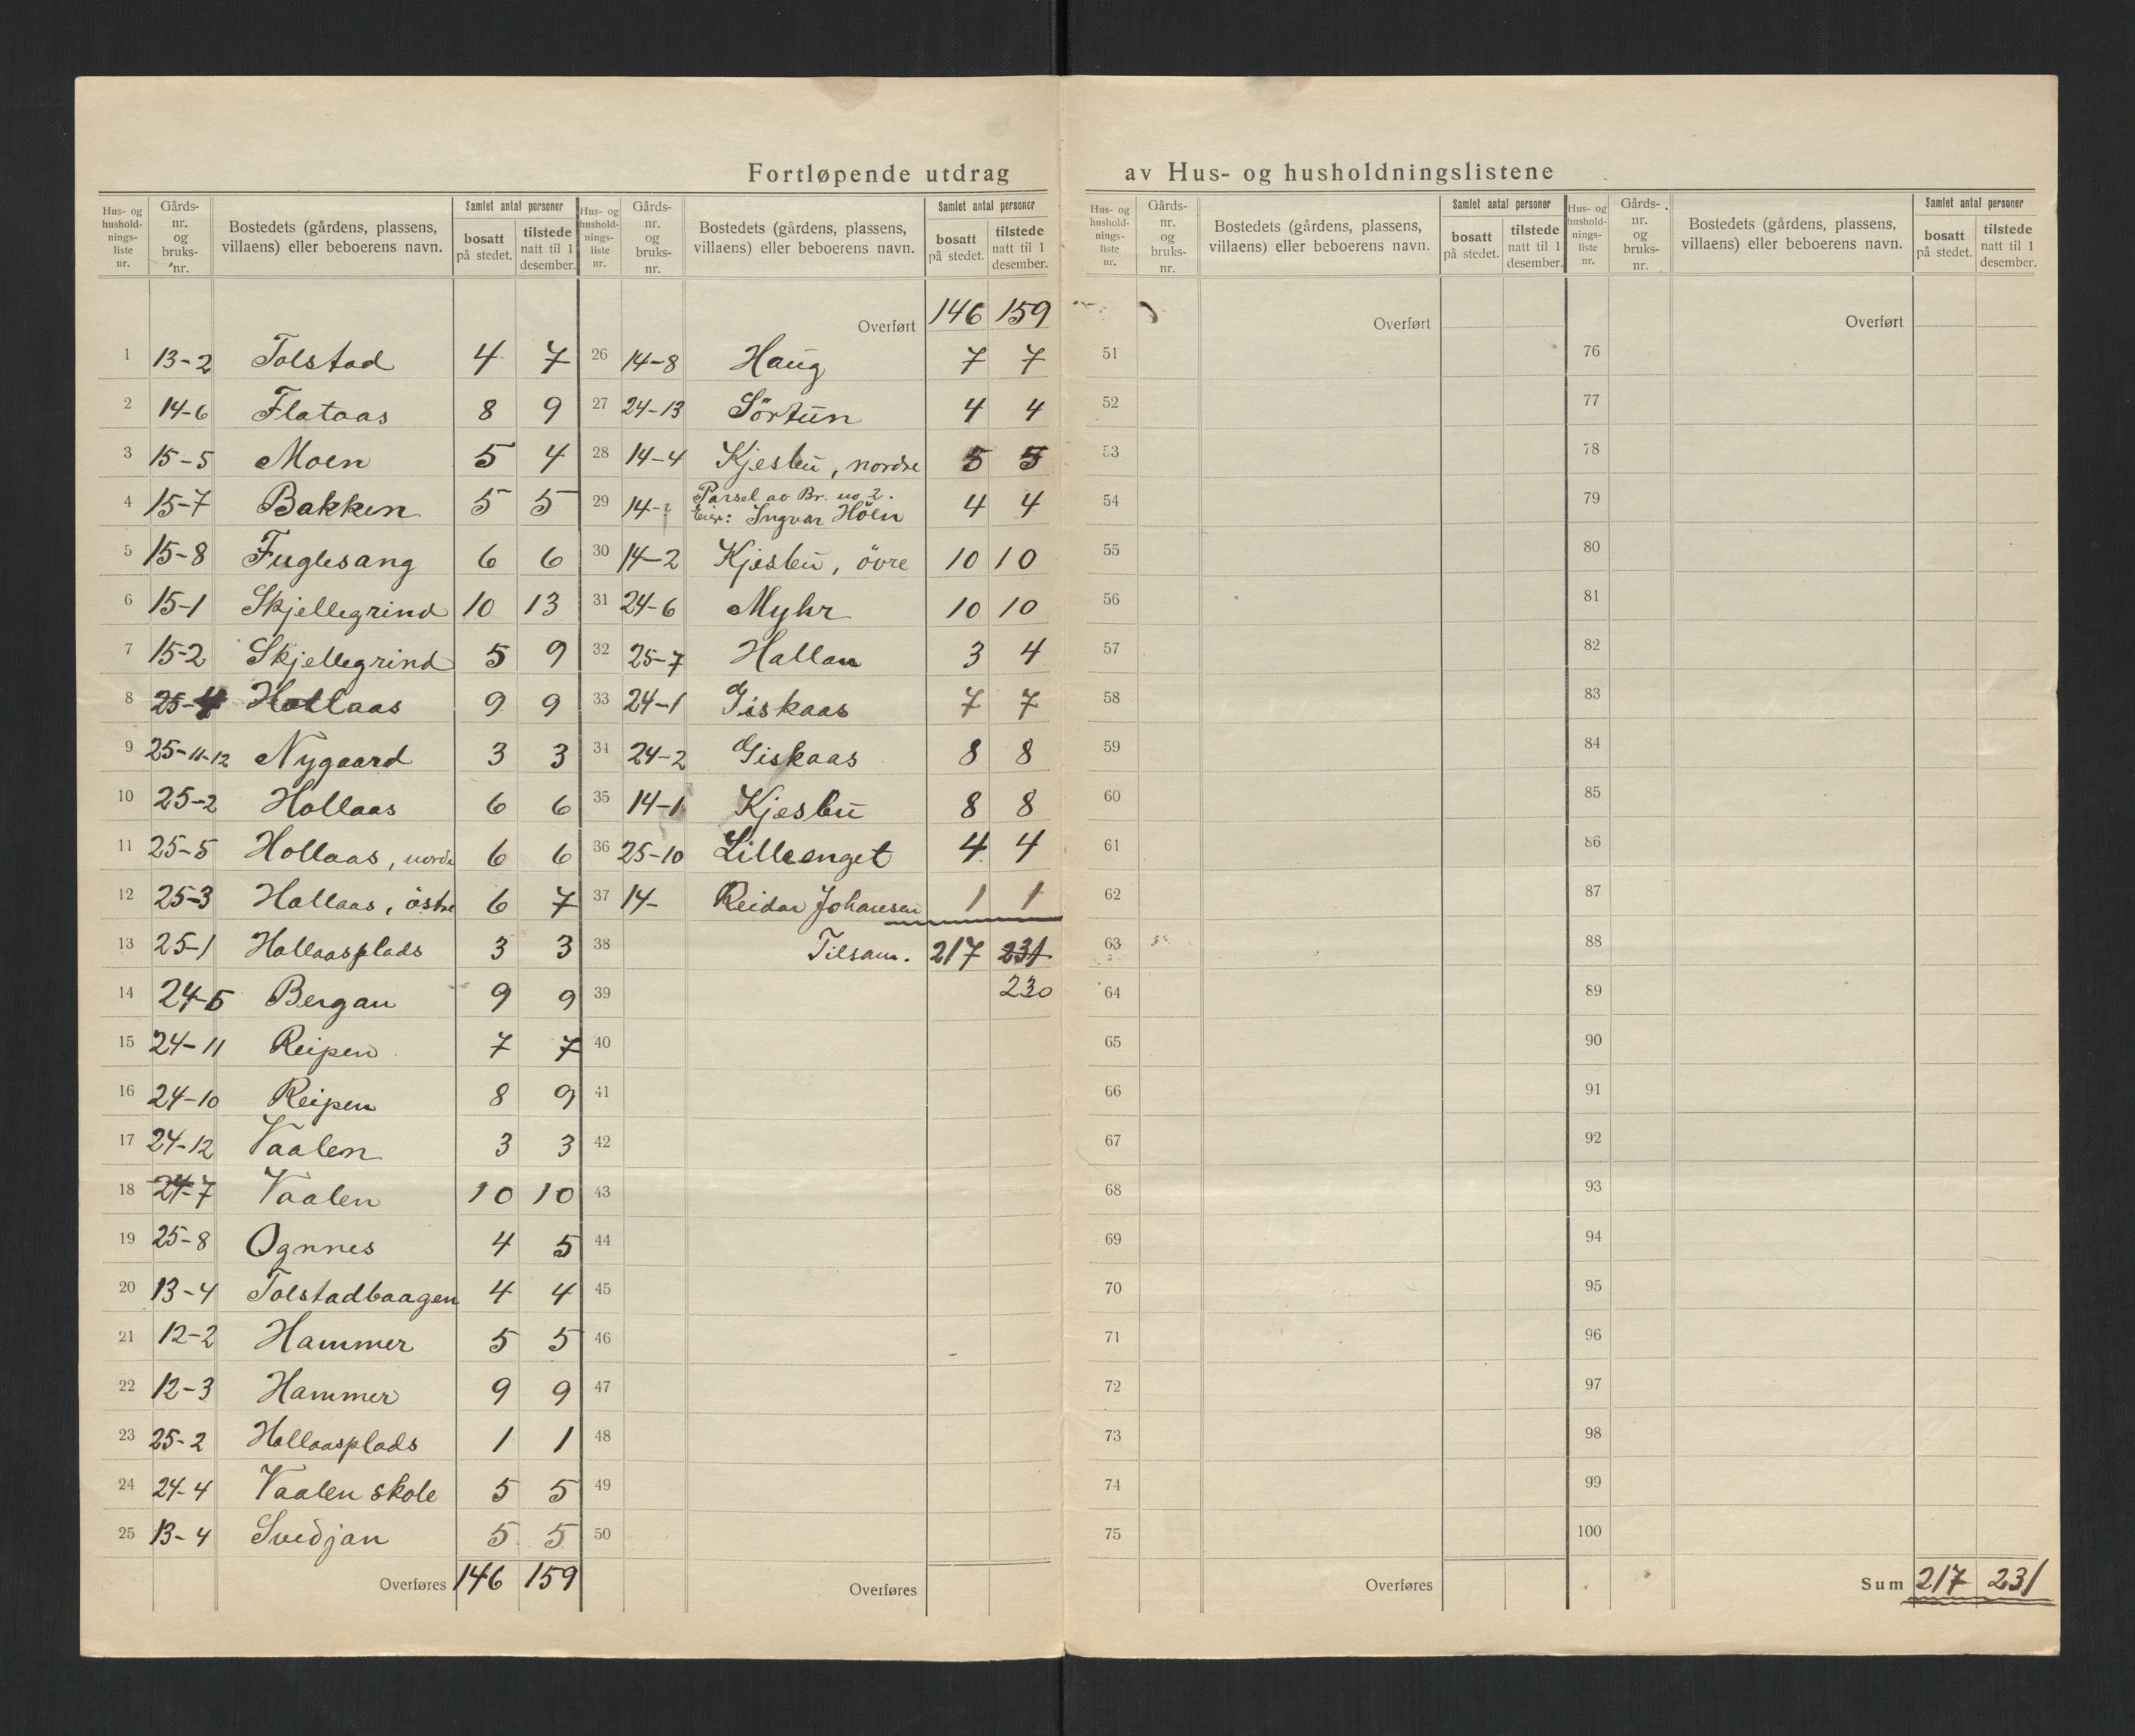 Fortløpende utdrag av Hus- og husholdningslistene
Hus- og hushold-nings-liste nr. Gårds-nr. og bruks-nr. Bostedets (gårdens, plassens, villaens) eller beboerens navn. Samlet antal personer bosatt på stedet. tilstede natt til 1 desember.
1 13-2 Tolstad 4 7
2 14-6 Flataas 8 9
3 15-5 Moen 5 4
4 15-7 Bakken 5 5
5 15-8 Fuglesang 6 6
6 15-1 Skjellegrind 10 13
7 15-2 Skjellegrind 5 9
8 25-4 Hollaas 9 9
9 25-11-12 Nygaard 3 3
10 25-2 Hollaas 6 6
11 25-5 Hollaas, nordre 6 6
12 25-3 Hollaas, östre 6 7
13 25-1 Hollaasplads 3 3
14 24-5 Bergan 9 9
15 24-11 Reipen 7 7
16 24-10 Reipen 8 9
17 24-12 Vaalen 3 3
18 24-7 Vaalen 10 10
19 25-8 Ognnes 4 5
20 13-4 Tolstadbaagen 4 4
21 12-2 Hammer 5 5
22 12-3 Hammer 9 9
23 25-2 Hollaasplads 1 1
24 24-4 Vaalen skole 5 5
25 13-4 Svedjan 5 5
Overføres 146 159
Hus- og hushold-nings-liste nr. Gårds-nr. og bruks-nr. Bostedets (gårdens, plassens, villaens) eller beboerens navn. Samlet antal personer bosatt på stedet. tilstede natt til 1 desember.
Overført 146 159
26 14-8 Haug 7 7
27 24-13 Sörtun 4 4
28 14-4 Kjesbu, nordre 5 5
29 14-2 Parsel av Br. no 2. 4 4
Eier: Ingvar Höen
30 14-2 Kjesbu, övre 10 10
31 24-6 Myhr 10 10
32 25-7 Hallan 3 4
33 24-1 Giskaas 7 7
34 24-2 Giskaas 8 8
35 14-1 Kjesbu 8 8
36 25-10 Lilleenget 4 4
37 14- Reidar Johansen 1 1
38 Tilsam. 217 231
39 230
40
41
42
43
44
45
46
47
48
49
50
Overføres
Hus- og hushold-nings-liste nr. Gårds-nr. og bruks-nr. Bostedets (gårdens, plassens, villaens) eller beboerens navn. Samlet antal personer bosatt på stedet. tilstede natt til 1 desember.
Overført
51
52
53
54
55
56
57
58
59
60
61
62
63
64
65
66
67
68
69
70
71
72
73
74
75
Overføres
Hus- og hushold-nings-liste nr. Gårds-nr. og bruks-nr. Bostedets (gårdens, plassens, villaens) eller beboerens navn. Samlet antal personer bosatt på stedet. tilstede natt til 1 desember.
Overført
76
77
78
79
80
81
82
83
84
85
86
87
88
89
90
91
92
93
94
95
96
97
98
99
100
Sum 217 231